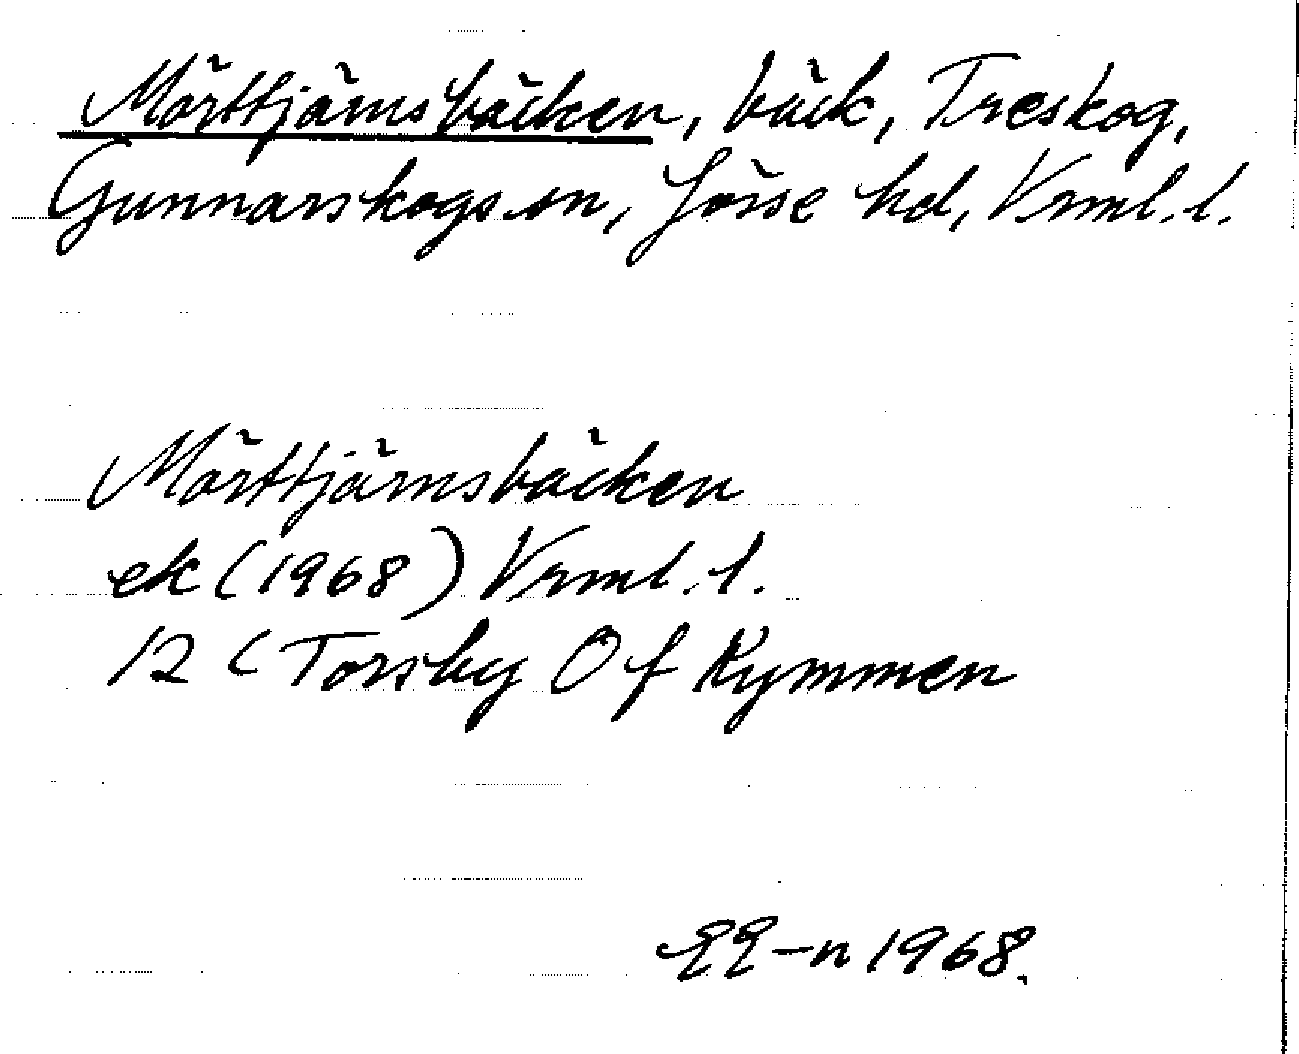 Mörttjärnsbäcken, bäck, Treskog,
Gunnarskogs sn, Jösse hd, Vrml. l.
Mörttjärnsbäcken
ek (1968) Vrml. l.
12 C Torsby Of Kymmen
EE-n 1968.